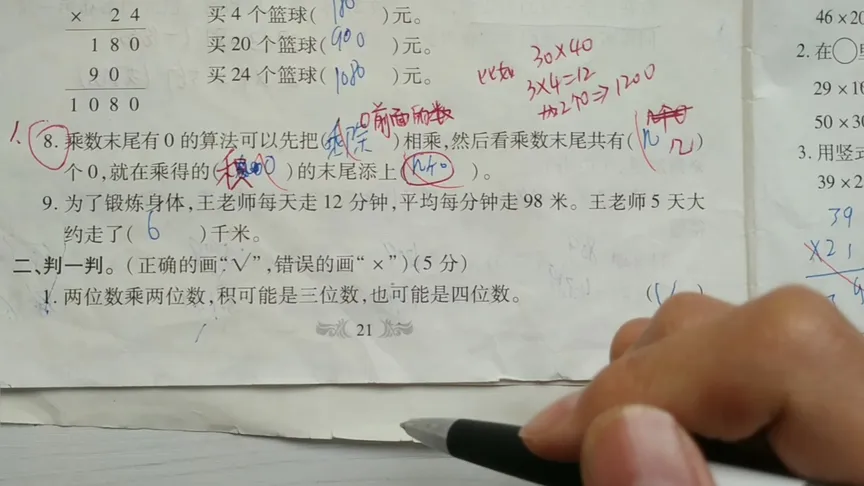 × 24
180
90
1080
买4个篮球(180)元。
买20个篮球(900)元。
买24个篮球(1080)元。
比如 30×40
3×4=12
加2个0⇒1200
0前面的数
1.
8.乘数末尾有0的算法可以先把()相乘,然后看乘数末尾共有(几)
个0,就在乘得的(积)的末尾添上(几个0)。
9.为了锻炼身体,王老师每天走12分钟,平均每分钟走98米。王老师5天大
约走了(6)千米。
二、判一判。(正确的画“√”,错误的画“×”)(5分)
1.两位数乘两位数,积可能是三位数,也可能是四位数。
21
46×20
2.在○里
29×16
50×30
3.用竖式
39×2
39
×21